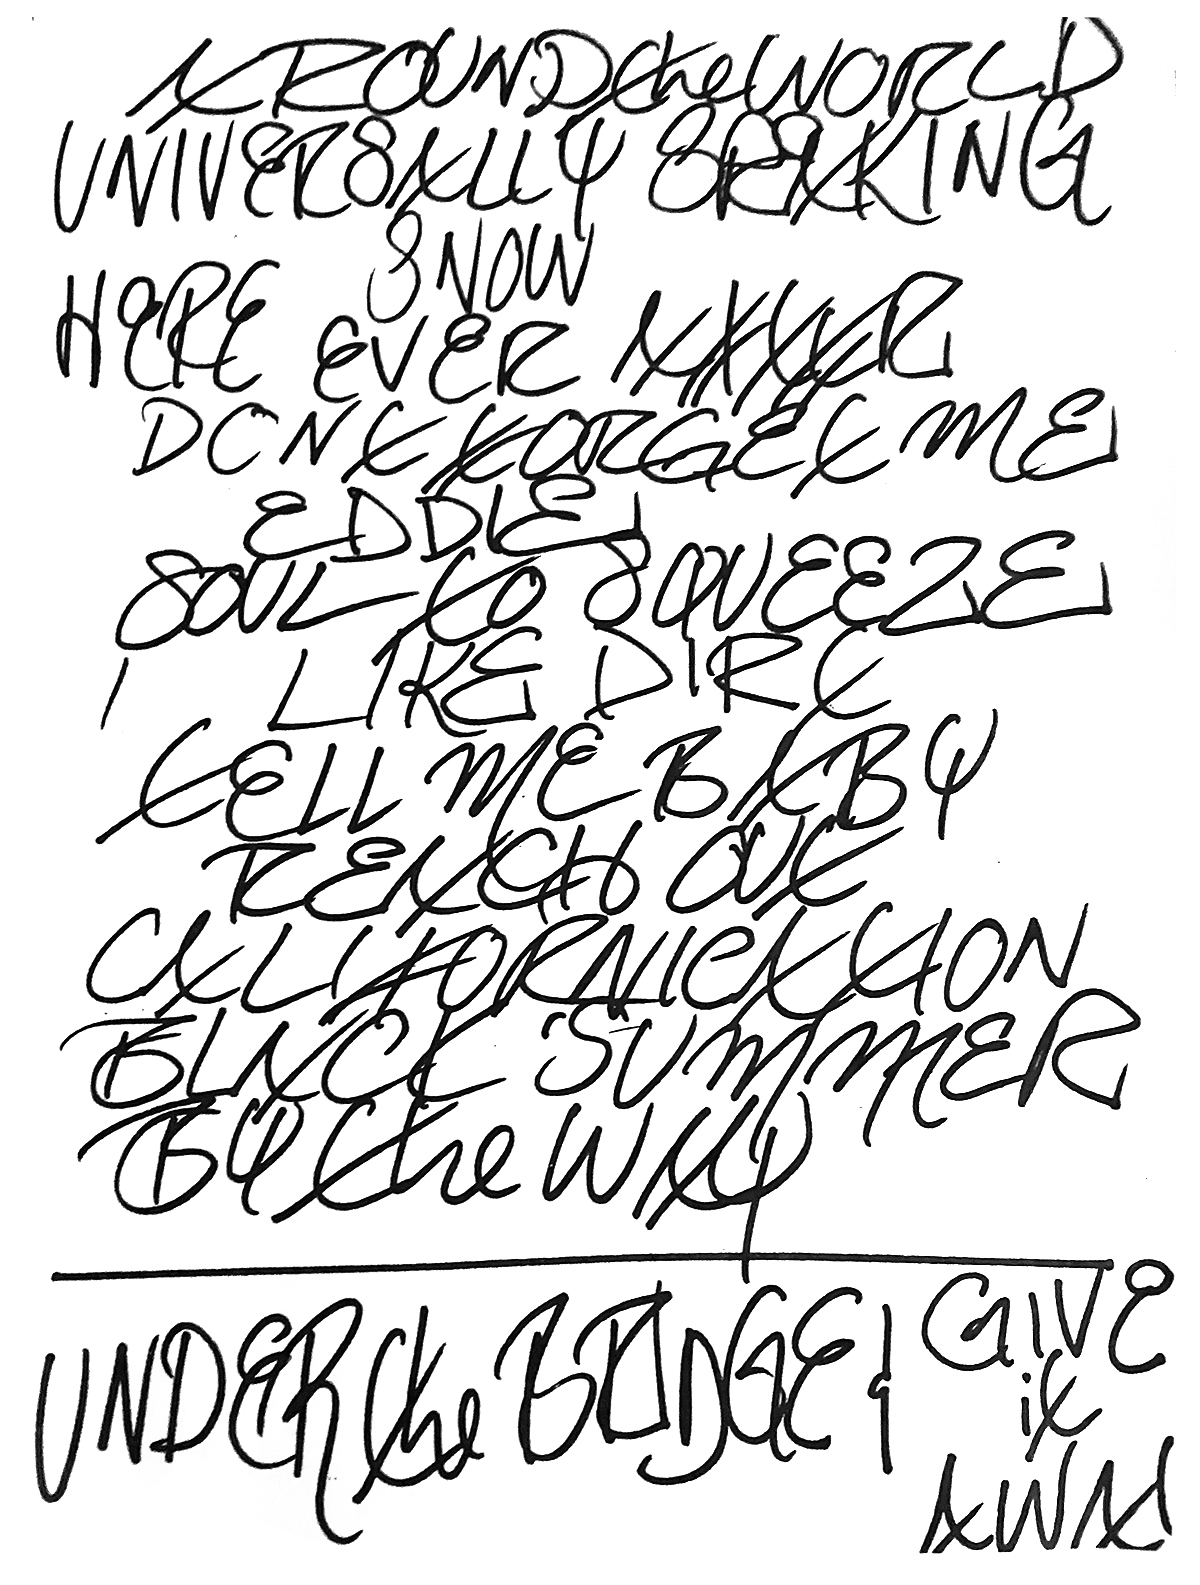 AROUND the WORLD
UNIVERSALLY SPEAKING
SNOW
HERE EVER AFTER
DONT FORGET ME
EDDIE
SOUL TO SQUEEZE
I LIKE DIRT
TELL ME BABY
REACH OUT
CALIFORNICATION
BLACK SUMMER
BY the WAY
UNDER the BRIDGE
GIVE
it
AWAY